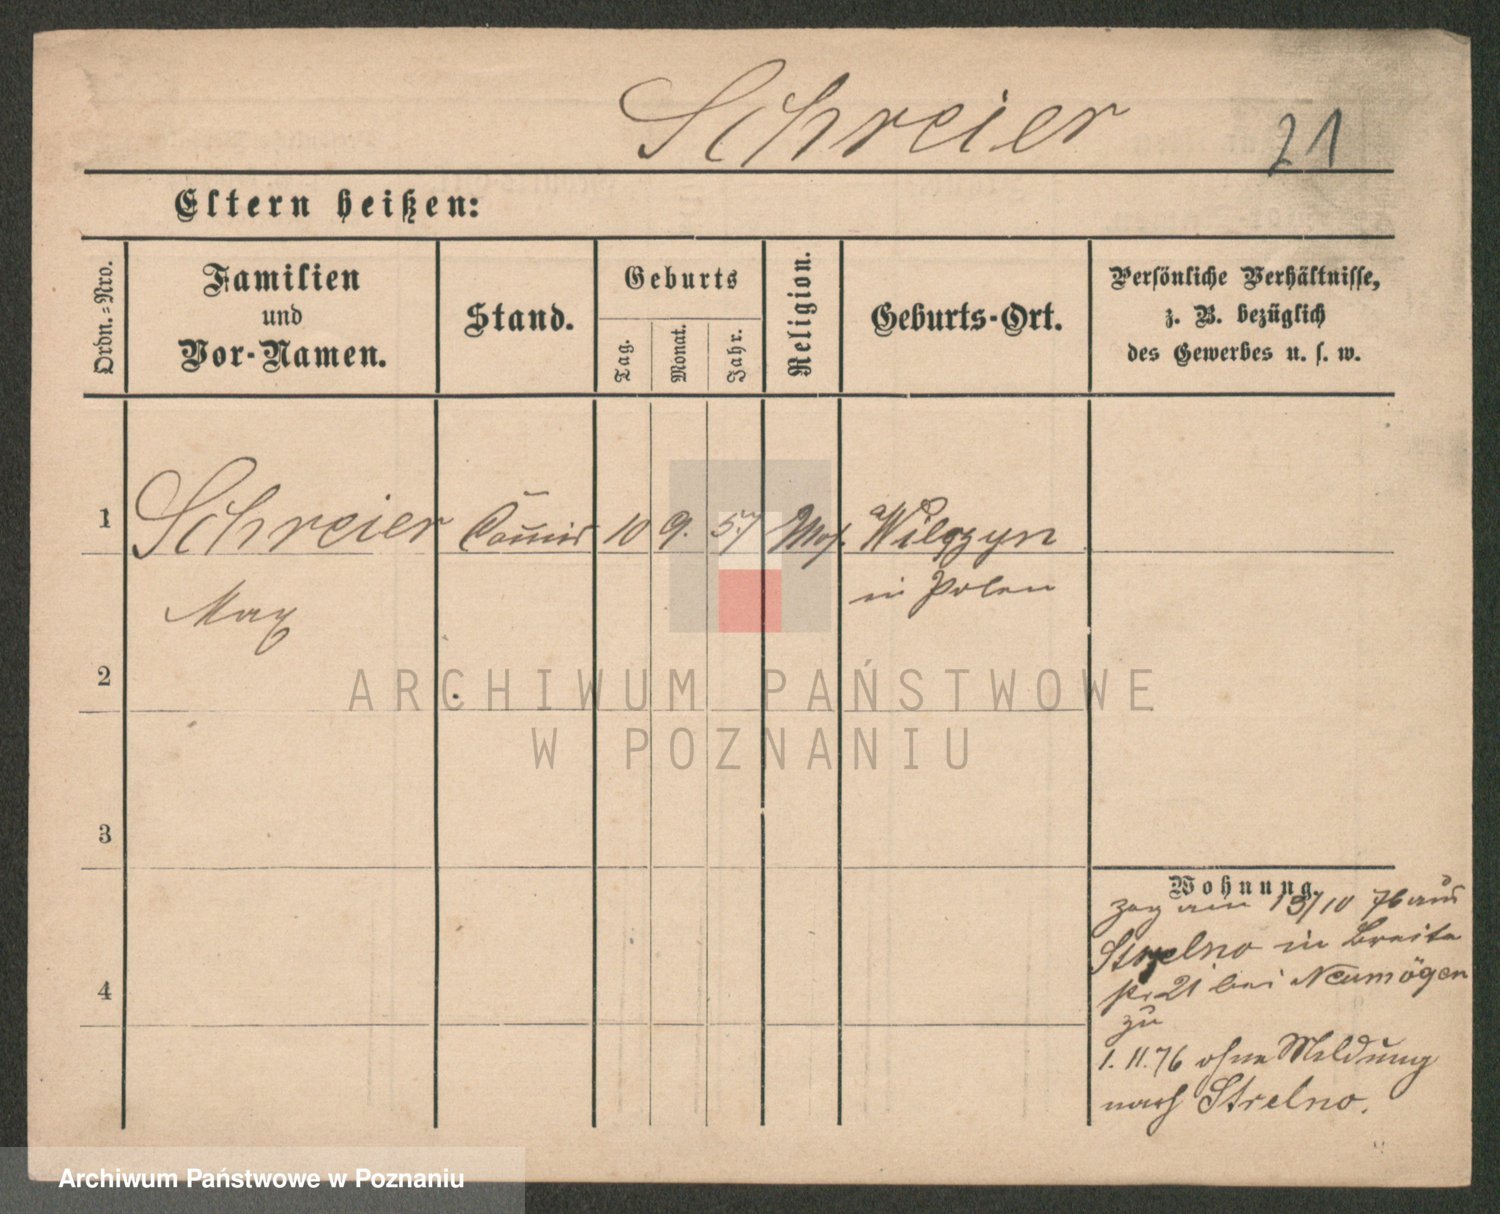 Schreier 21
Eltern heißen:
Ordn.-Nro.
Familien
und
Vor-Namen.
Stand.
Geburts
Tag.
Monat.
Jahr.
Religion.
Geburts-Ort.
Persönliche Verhältnisse,
z. B. bezüglich
des Gewerbes u. s. w.
1 Schreier Commis 10 9. 57 Mos. Wilczyn
Max in Polen
2
ARCHIWUM PAŃSTWOWE
W POZNANIU
3
Wohnung.
zog am 13/10 76 aus
Strelno in Breite
str 21 bei Neumögen
zu
4
1. 11. 76 ohne Meldung
nach Strelno.
Archiwum Państwowe w Poznaniu